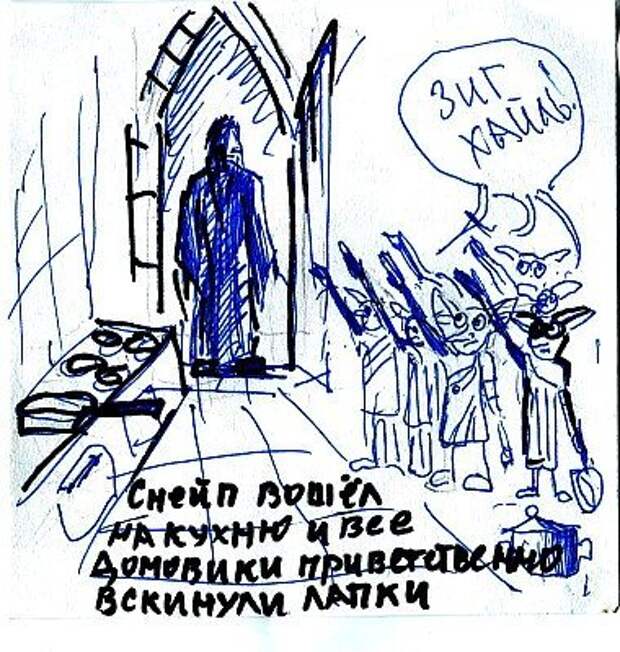 ЗИГ
ХАЙЛЬ!
Снейп вошёл
на кухню и все
домовики приветственно
вскинули лапки